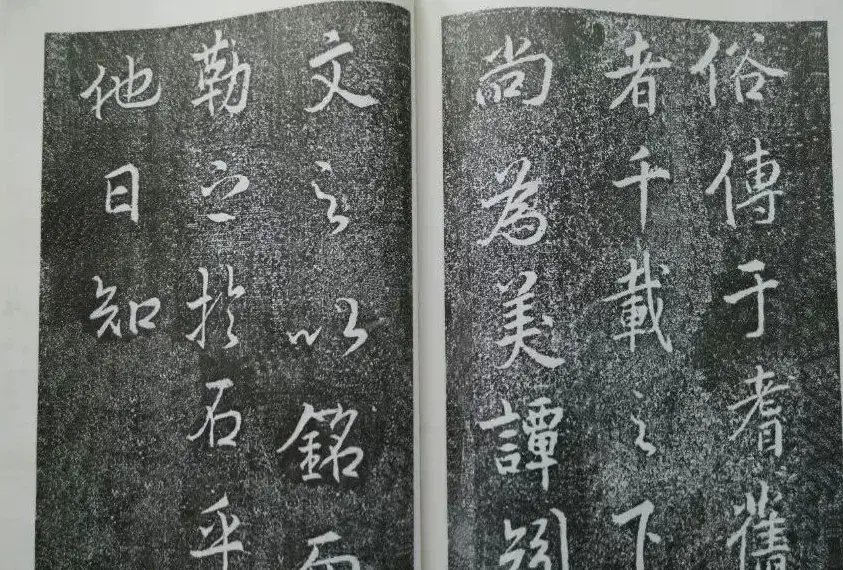 俗傳于耆舊
者千載之下
尚為美譚矧
文之以銘而
勒之於石乎
他日知